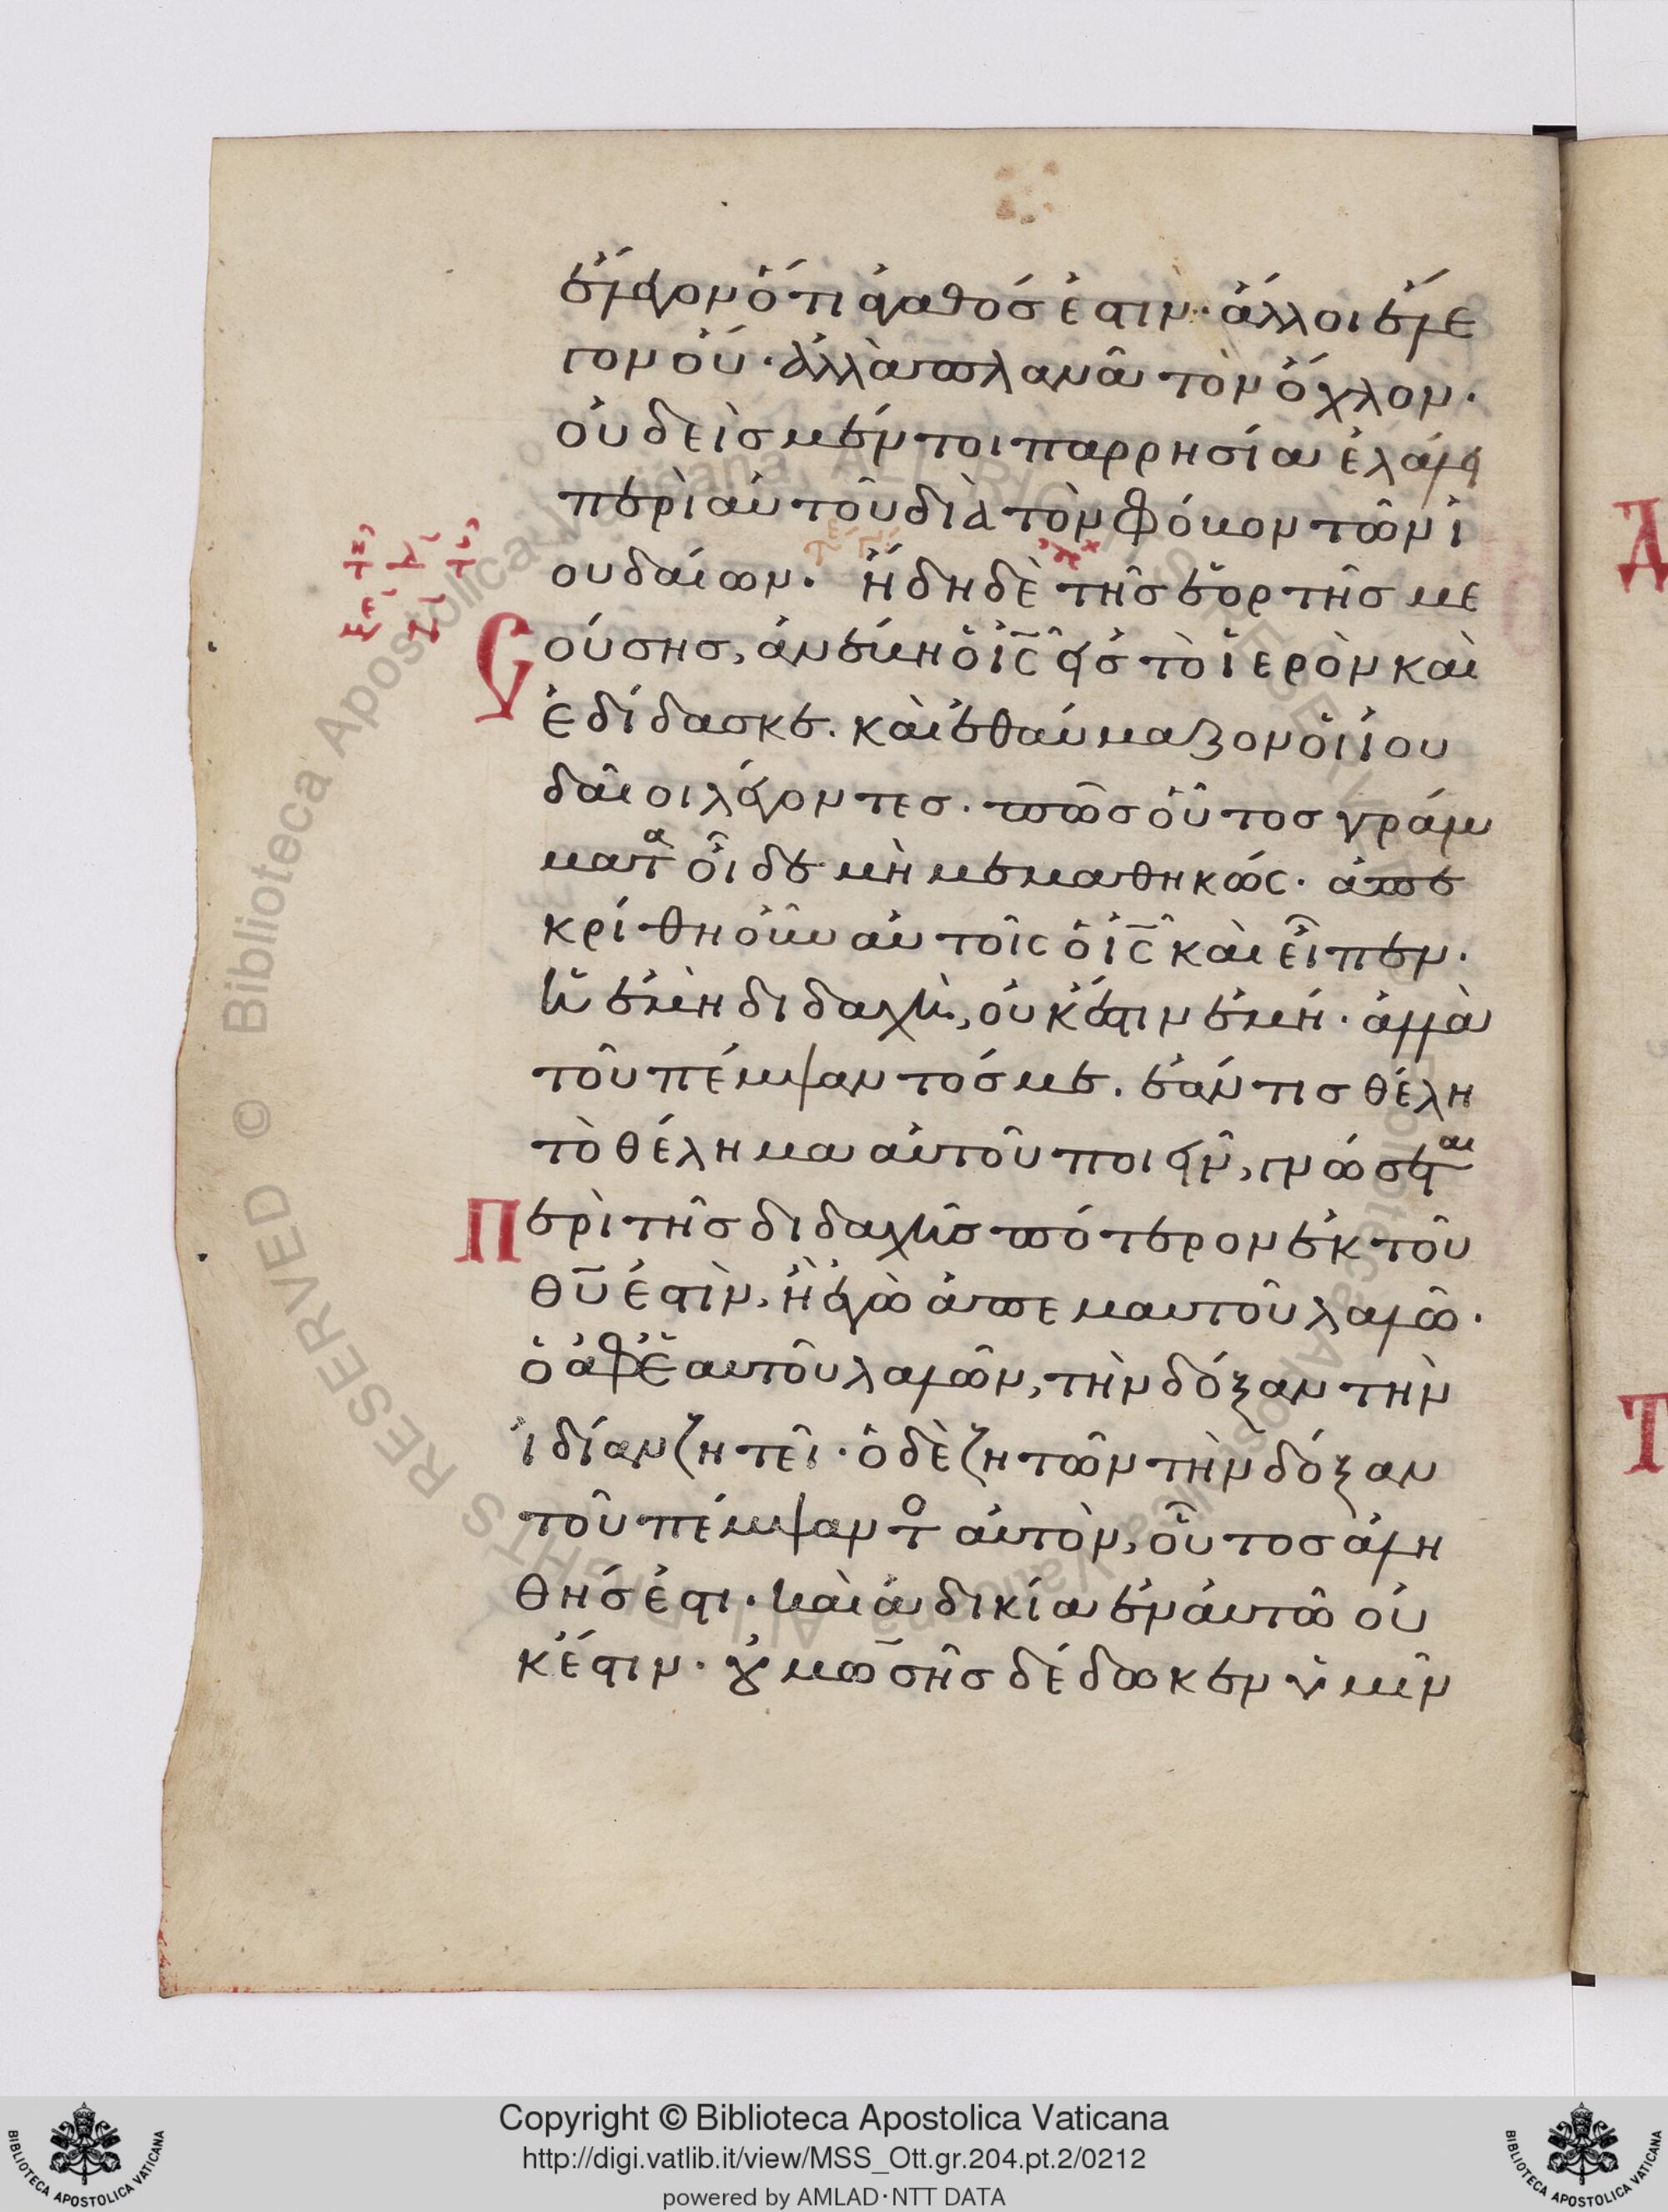 ἔλεγον ὅτι ἀγαθός ἐστιν· ἄλλοι ἔλε
γον οὔ· ἀλλὰ πλανᾶ τὸν ὄχλον·
οὐδεὶς μέντοι παρρησία ἐλάλει
περὶ αὐτοῦ διὰ τὸν φόβον τῶν ἰ
ουδαίων. ἤδη δὲ τῆς ἑορτῆς με
σούσης, ἀνέβη ὁ ις εἰς τὸ ἱερὸν καὶ
ἐδίδασκε. καὶ ἐθαύμαζον οἱ ἰου
δαῖοι λέγοντες. πῶς οὗτος γράμ
ματα οἶδε μὴ μεμαθηκώς. ἀπε
κρίθη οὖν αὐτοῖς ὁ ις καὶ εἶπεν.
ἡ ἐμὴ διδαχὴ, οὐκ ἔστιν ἐμή. ἀλλὰ
τοῦ πέμψαντός με. ἐάν τις θέλη
τὸ θέλημα αὐτοῦ ποιεῖν, γνώσεται
Περὶ τῆς διδαχῆς πότερον ἐκ τοῦ
θυ ἐστὶν, ἢ ἐγὼ ἀπ' ἐμαυτοῦ λαλῶ.
ὁ ἀφ' ἑαυτοῦ λαλῶν, τὴν δόξαν τὴν
ἰδίαν ζητεῖ· ὁ δὲ ζητῶν τὴν δόξαν
τοῦ πέμψαντο αὐτὸν, οὗτος ἀλη
θής ἐστι. καὶ ἀδικία ἐν αὐτῶ οὐ
κ ἔστιν. οὐ μωσῆς δέδωκεν ὑμῖν
Copyright © Biblioteca Apostolica Vaticana
http://digi.vatlib.it/view/MSS_Ott.gr.204.pt.2/0212
powered by AMLAD·NTT DATA